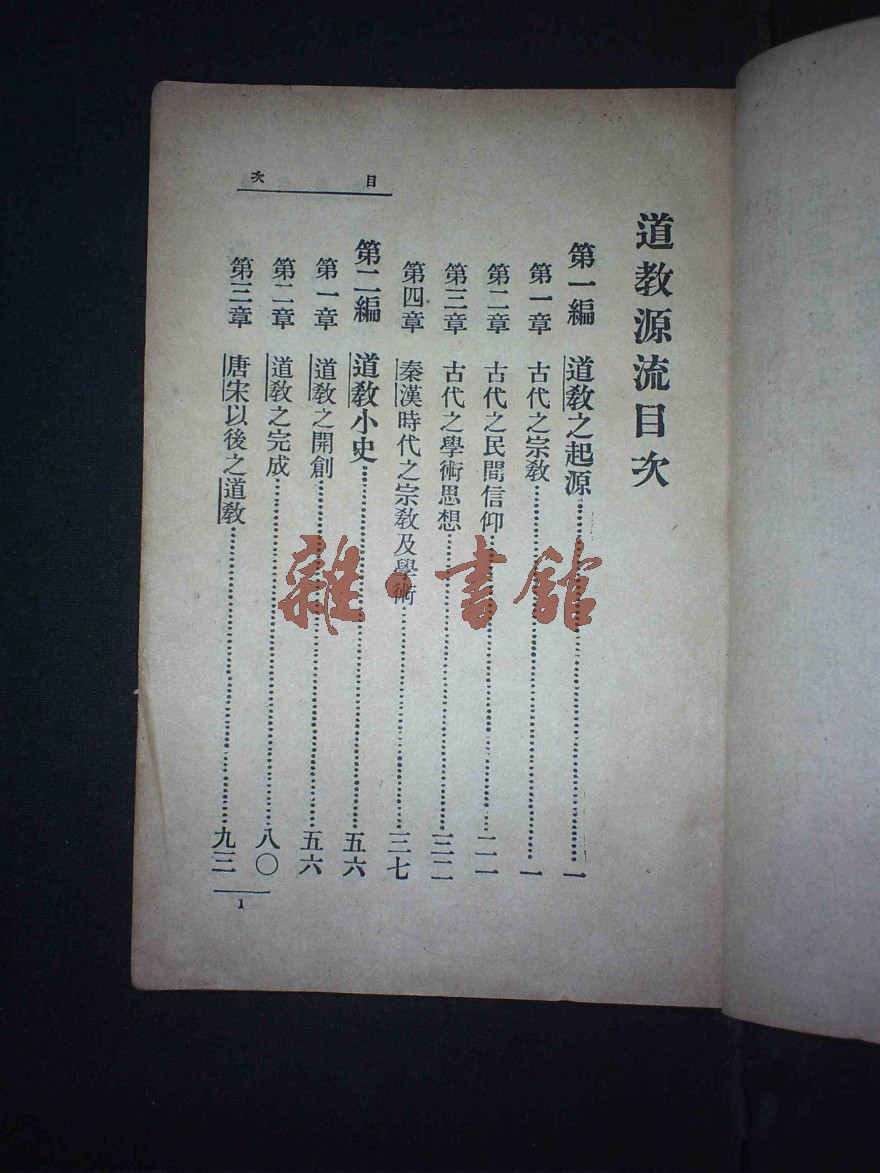 目次
道教源流目次
第一編 道教之起源……………一
第一章 古代之宗教……………一
第二章 古代之民間信仰……………二一
第三章 古代之學術思想……………三二
第四章 秦漢時代之宗教及學術……………三七
第二編 道教小史……………五六
第一章 道教之開創……………五六
第二章 道教之完成……………八〇
第三章 唐宋以後之道教……………九三
1
雜·書館